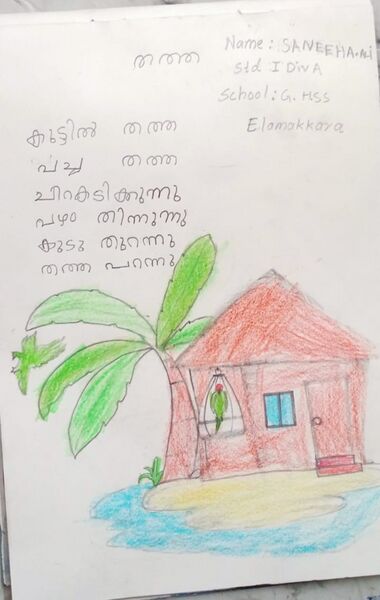 തത്ത
Name: SANEEHA.Ali
Std I Div A
School: G. HSS
Elamakkara
കൂട്ടിൽ തത്ത
പച്ച തത്ത
ചിറകടിക്കുന്നു
പഴം തിന്നുന്നു
കൂടു തുറന്നു
തത്ത പറന്നു